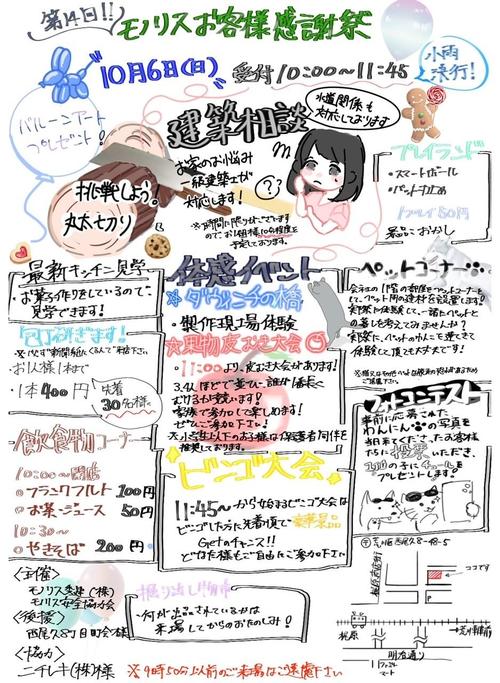 第14回!!
モノリスお客様感謝祭
10月6日(日) 受付10:00~11:45
小雨
決行!
バルーンアート
プレゼント!
建築相談
水道関係も
対応しております
お家のお悩み
一級建築士が
対応します!
※お時間に限りがございます
のでお1組様10分程度を
予定しております。
挑戦しよう!
丸太切り
プレイランド
・スマートボール
・パットゴルフ
1プレイ50円
景品:おかし
最新キッチン見学
・お菓子作りをしているので、
見学できます!
包丁とぎます!
※必ず新聞紙にくるんで来店下さい
お1人様1本まで
・1本400円
先着
30名様
体感イベント
※ダヴィンチの橋
・製作現場体験
☆果物皮むき大会
11:00より、皮むき大会があります!
3、4人ほどで並び、誰が1番長く
むけるか競います!
家族で参加して楽しめます!
ぜひご参加下さい!
※小学生以下のお子様は保護者同伴を
推奨しております。
ペットコーナー
会社の1階の部屋をペットコーナーと
して、ペット用の建材を設置します!
実際に体験して、一緒にペットと
の暮しを考えてみませんか?
実際に、ペットのわんこを連れて
体験して頂も大丈夫です!
フォトコンテスト
事前に応募された
わんにゃんの写真を
当日来てくださったお客様
方に投票いただき、
1位の子にチュールを
プレゼントします!
飲食物コーナー
10:00~開催
・フランクフルト 100円
・お茶・ジュース 50円
10:30~
・やきそば 200円
ビンゴ大会
11:45~から始まるビンゴ大会は
ビンゴした方に先着順で豪華景品
Getのチャンス!!
どなた様もご自由にご参加下さい
<主催>
モノリス秀建(株)
モノリス安全協力会
<後援>
西尾久8丁目町会様
<協力>
ニチレキ(株)様
掘り出し物市
・何が出品されているかは
来場してからのおたのしみ!
※9時50分以前のご来場はご遠慮下さい
〒荒川区西尾久8-48-5
ココです
梶原
明治通り
ファミリー
マート